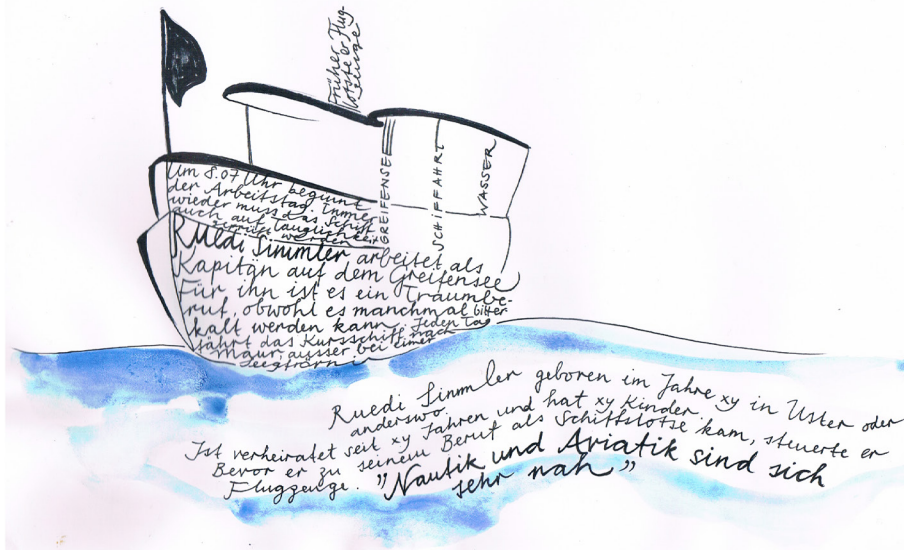 Früher
lotste er Flug-
zeuge
Um 8.07 Uhr beginnt
der Arbeitstag. Immer
wieder muss das Schiff
auch auf Tauglichkeit
werden
GREIFENSEE
SCHiFFAHRT
WASSER
Ruedi Simmler arbeitet als
Kapitän auf dem Greifensee
Für ihn ist es ein Traumbe-
ruf, obwohl es manchmal bitter
kalt werden kann. Jeden Tag
fährt das Kursschiff nach
Maur, ausser bei einer
Seegfrörni
Ruedi Simmler geboren im Jahre xy in Uster oder
anderswo.
Ist verheiratet seit xy Jahren und hat xy Kinder.
Bevor er zu seinem Beruf als Schiffslotse kam, steuerte er
Flugzeuge. "Nautik und Aviatik sind sich
sehr nah"